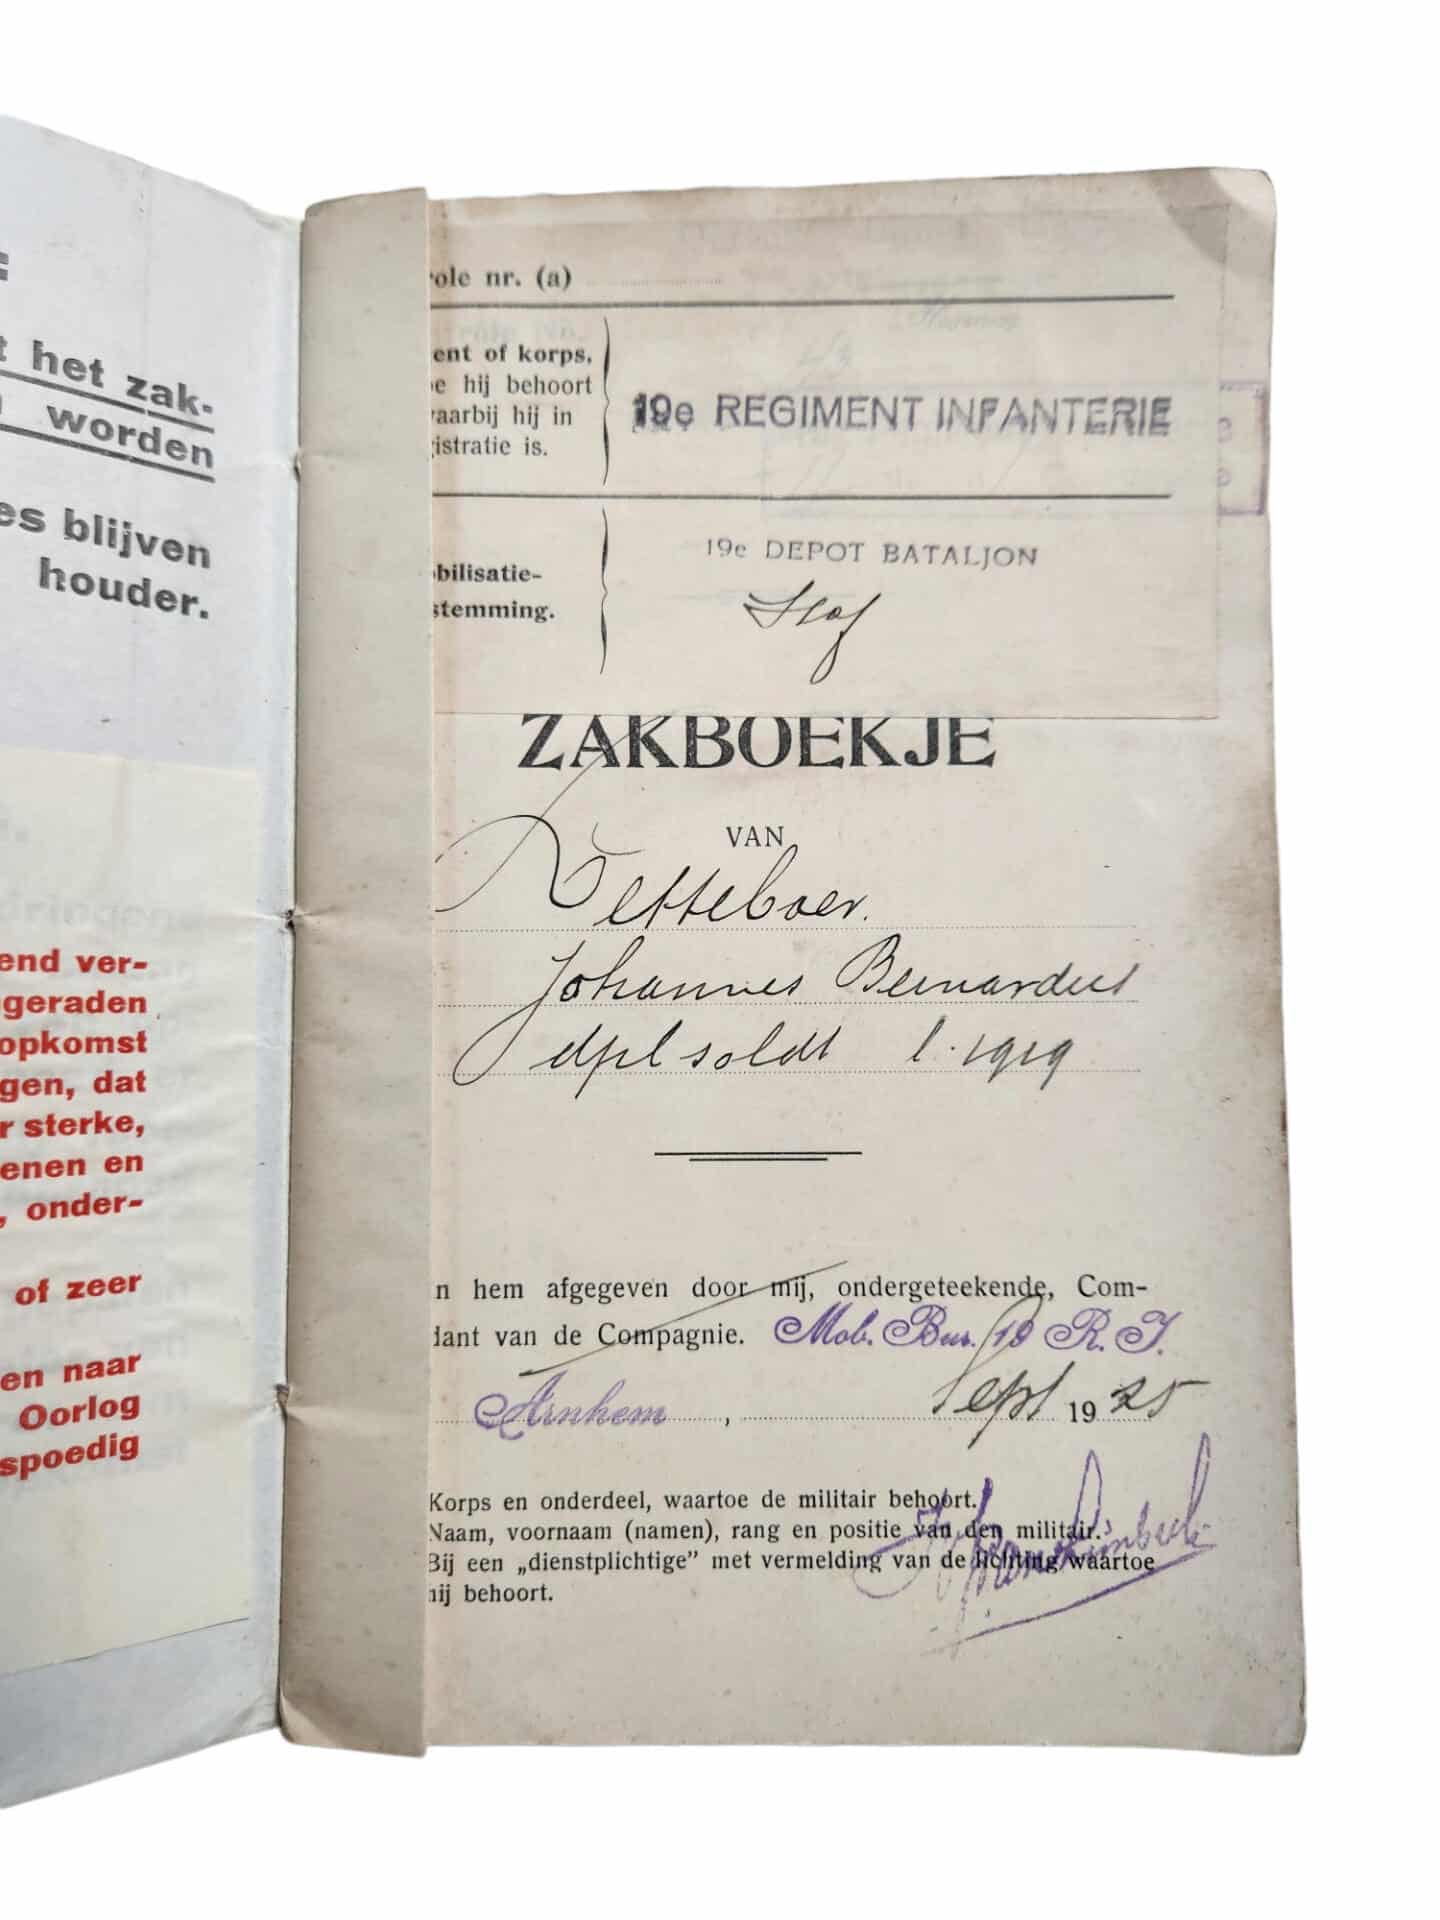 t het zak-
worden
es blijven
houder.
end ver-
geraden
opkomst
gen, dat
r sterke,
enen en
, onder-
of zeer
en naar
Oorlog
spoedig
role nr. (a)
ent of korps,
e hij behoort
aarbij hij in
istratie is.
19e REGIMENT INFANTERIE
bilisatie-
stemming.
19e DEPOT BATALJON
Staf
ZAKBOEKJE
VAN
Johannes Bernardus
dpl soldt l. 1919
n hem afgegeven door mij, ondergeteekende, Com-
dant van de Compagnie. Mob. Bur. 19 R. I.
Arnhem, Sept 1925
Korps en onderdeel, waartoe de militair behoort.
Naam, voornaam (namen), rang en positie van den militair.
Bij een „dienstplichtige” met vermelding van de lichting waartoe
hij behoort.